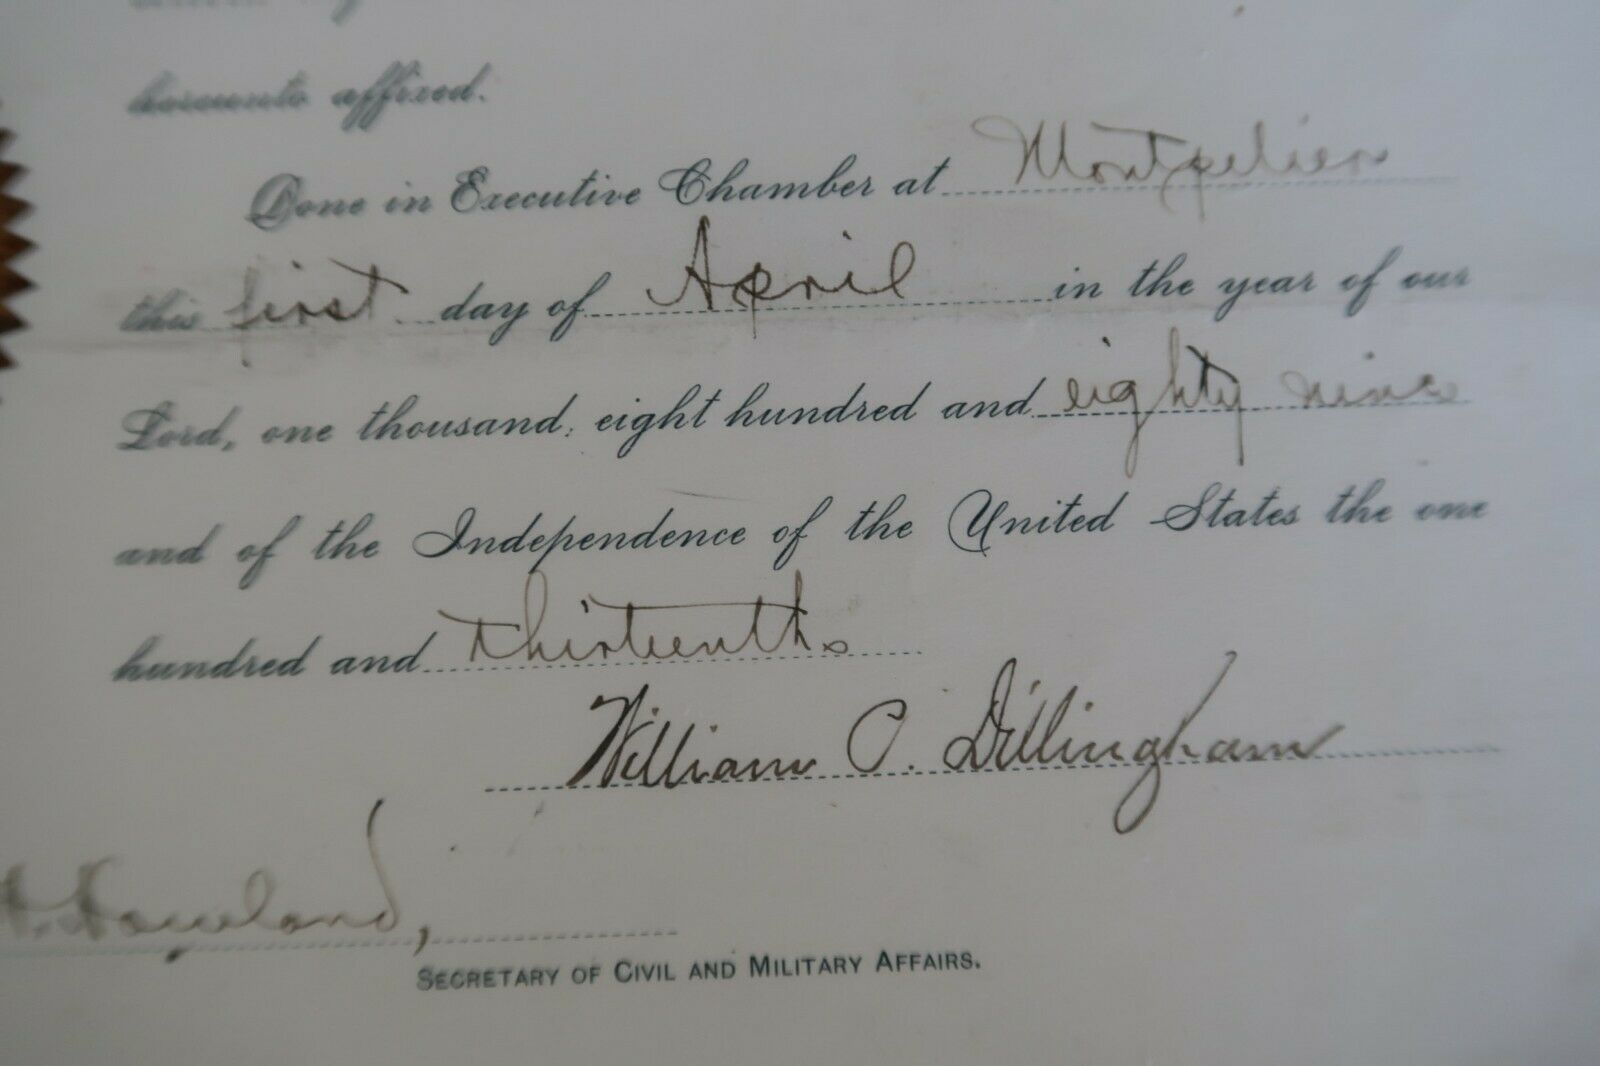 hereunto affixed.
Done in Executive Chamber at Montpelier
this first day of April in the year of our
Lord, one thousand, eight hundred and eighty nine
and of the Independence of the United States the one
hundred and thirteenth.
William P. Dillingham
H. Howland,
SECRETARY OF CIVIL AND MILITARY AFFAIRS.